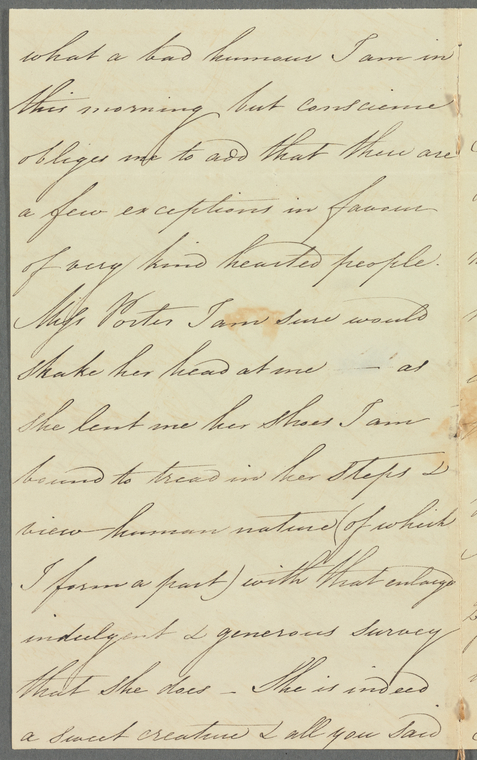 what a bad humour I am in
this morning but conscience
obliges me to add that there are
a few exceptions in favour
of very kind hearted people.
Miss Porter I am sure would
shake her head at me — as
she lent me her shoes I am
bound to tread in her steps &
view human nature (of which
I form a part) with that enlarge
indulgent & generous survey
that she does — She is indeed
a sweet creature & all you said